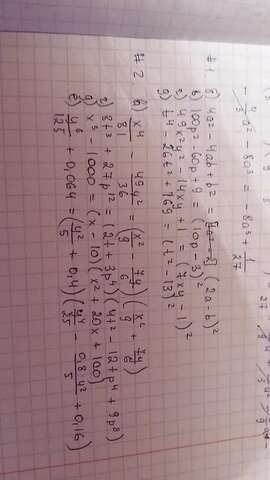 - 8a³ = -8a³ + 1/27
#1
б) 4a² - 4ab + b² = (2a-b)²
в) 100p² - 60p + 9 = (10p - 3)²
г) 49x²y² - 14xy + 1 = (7xy - 1)²
д) t⁴ - 26t² + 169 = (t² - 13)²
#2
б) x⁴/81 - 49y²/36 = (x²/9 - 7y/6)(x²/9 + 7y/6)
г) 8t³ + 27p¹² = (2t + 3p⁴)(4t² - 12tp⁴ + 9p⁸)
д) x³ - 1000 = (x - 10)(x² + 20x + 100)
е) y⁶/125 + 0,064 = (y²/5 + 0,4)(y⁴/25 - 0,8y²/5 + 0,16)